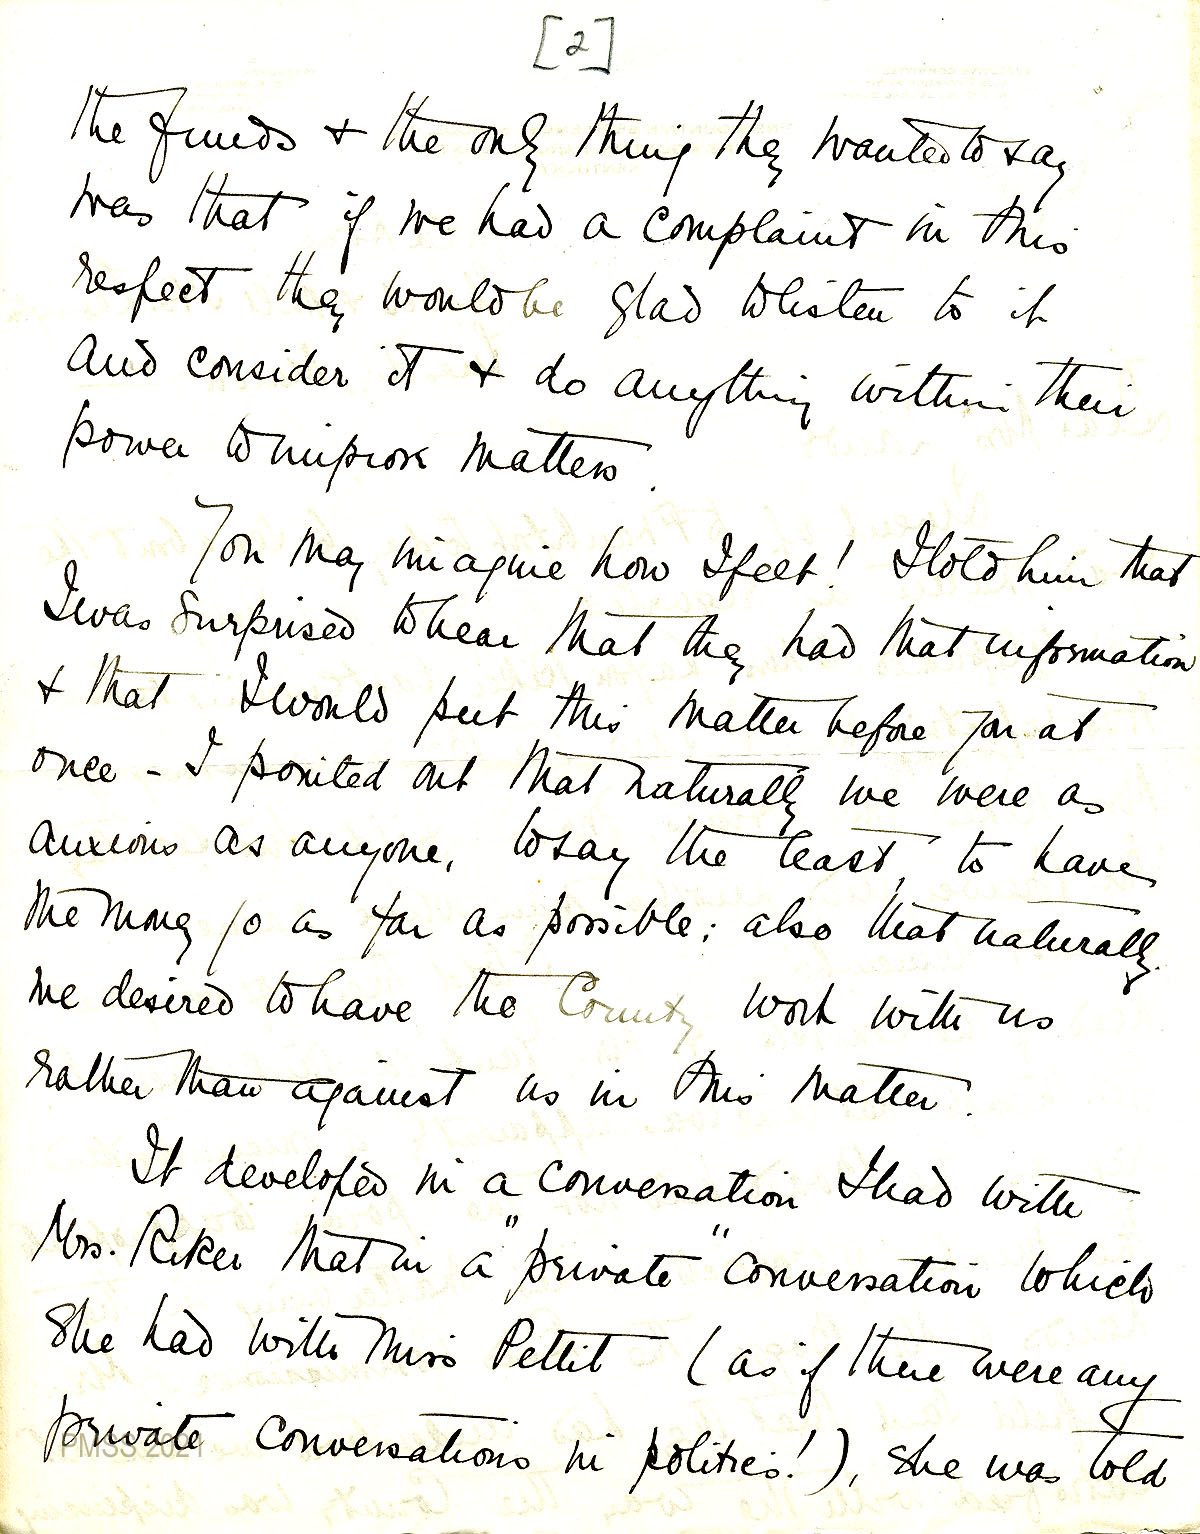 [2]
the funds & the only thing they wanted to say
was that if we had a complaint in this
respect they would be glad to listen to it
and consider it & do anything within their
power to improve matters.
You may imagine how I felt! I told him that
I was surprised to hear that they had that information
& that I would put this matter before you at
once - I pointed out that naturally we were as
anxious as anyone, to say the least, to have
the money go as far as possible; also that naturally
we desired to have the County work with us
rather than against us in this matter.
It developed in a conversation I had with
Mrs. Riker that in a "private" conversation which
she had with Miss Pettit (as if there were any
private conversations in politics!), she was told
PMSS 2021